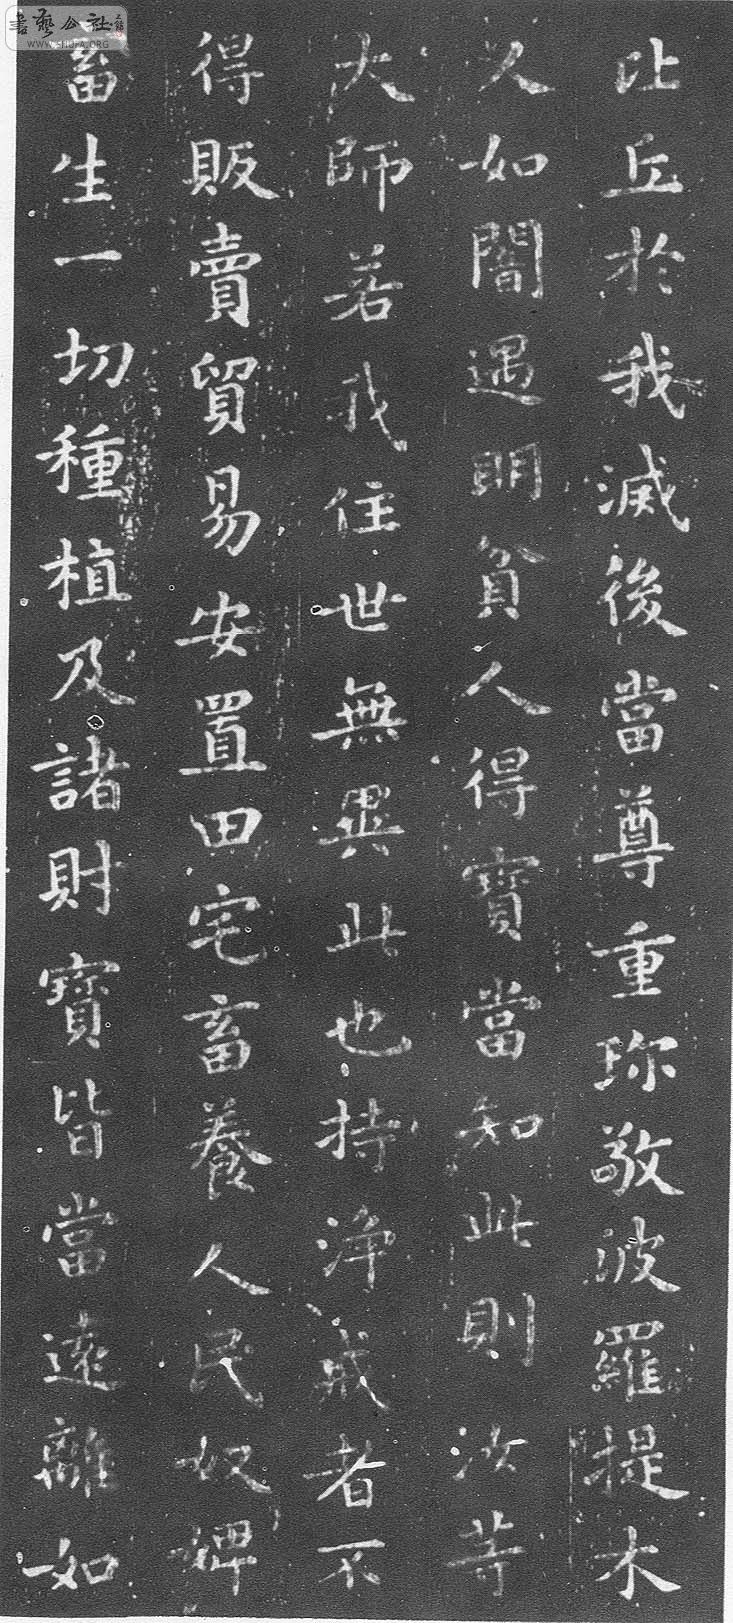 比丘於我滅後當尊重珎敬波羅提木
叉如闇遇明貧人得寶當知此則汝等
大師若我住世無異此也持淨戒者不
得販賣貿易安置田宅畜養人民奴婢
畜生一切種植及諸財寶皆當遠離如
書藝公社
WWW.SHUFA.ORG